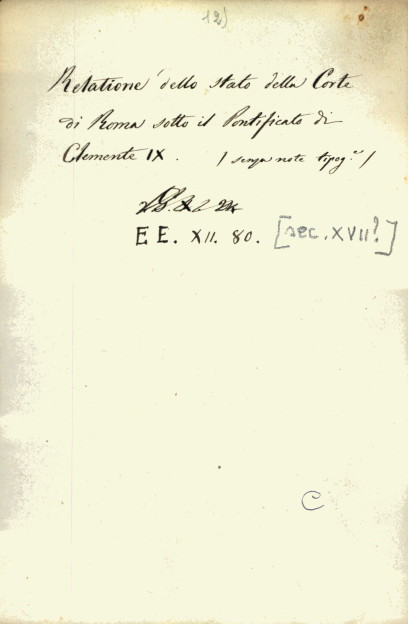 12)
Relatione dello stato della Corte
di Roma sotto il Pontificato di
Clemente IX. / senza note tipog.e /
EE. XII. 80. [sec. XVII?]
C